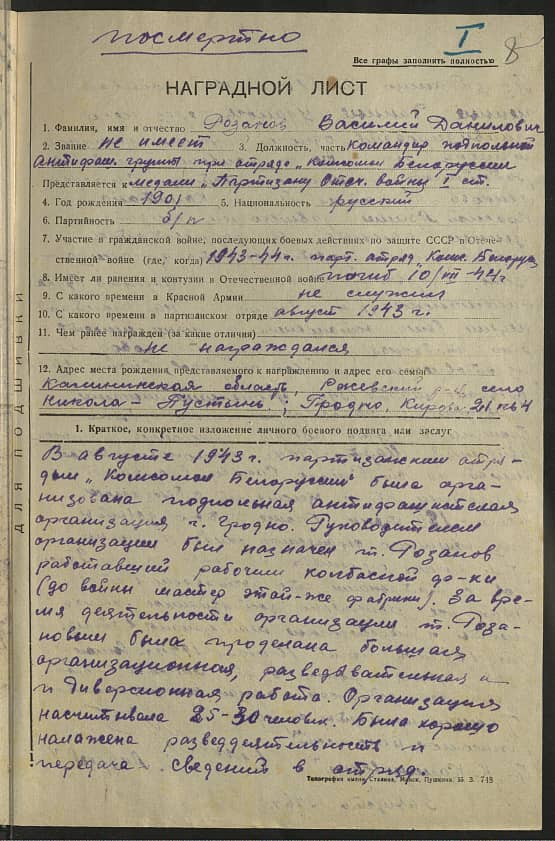 посмертно
I 8
Все графы заполнять полностью
НАГРАДНОЙ ЛИСТ
1. Фамилия, имя и отчество Розанов Василий Данилович
2. Звание не имеет 3. Должность, часть Командир подпольной
антифаш. группы при отряде „Комсомол Белоруссии
Представляется к медали „Партизану Отеч. войны I ст.
4. Год рождения 1901 5. Национальность русский
6. Партийность б/п
7. Участие в гражданской войне, последующих боевых действиях по защите СССР в Отече-
ственной войне (где, когда) 1943-44г. парт. отряд, Комс. Белорус
8. Имеет ли ранения и контузии в Отечественной войне погиб 10/VII-44г
9. С какого времени в Красной Армии не служил
10. С какого времени в партизанском отряде август 1943 г.
11. Чем ранее награжден (за какие отличия)
не награждался
12. Адрес места рождения представляемого к награждению и адрес его семьи
Калининская область, Ржевский р-н, село
Никола Пустынь., Гродно, Кирова 21 кв 4
1. Краткое, конкретное изложение личного боевого подвига или заслуг
В августе 1943 г. партизанским отря-
дом „Комсомол Белоруссии" была орга-
низована подпольная антифашистская
организация, г. Гродно. Руководителем
организации был назначен т. Розанов
работавший рабочим колбасной ф-ки
(до войны мастер этой-же фабрики). За вре-
мя деятельности организации т. Роза-
новым была проделана большая
организационная, разведывательная и
и диверсионная работа. Организация
насчитывала 25-30 человек. Была хорошо
налажена разведдеятельность и
передача сведений в отряд.
Типография им. Сталина, Минск, Пушкина, 55 З. 748
ДЛЯ ПОДШИВКИ